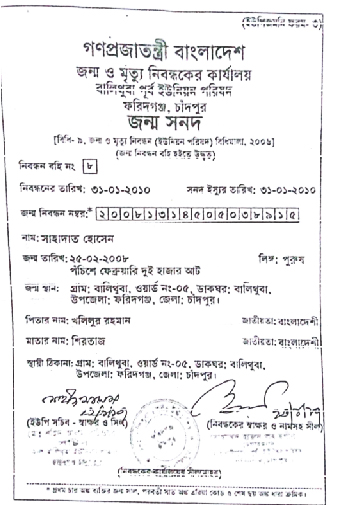 (ইউপিজনি ফরম-৩)
গণপ্রজাতন্ত্রী বাংলাদেশ
জন্ম ও মৃত্যু নিবন্ধকের কার্যালয়
বালিথুবা পূর্ব ইউনিয়ন পরিষদ
ফরিদগঞ্জ, চাঁদপুর
জন্ম সনদ
[বিধি- ৯, জন্ম ও মৃত্যু নিবন্ধন (ইউনিয়ন পরিষদ) বিধিমালা, ২০০৬]
(জন্ম নিবন্ধন বহি হইতে উদ্ধৃত)
নিবন্ধন বহি নং ৮
নিবন্ধনের তারিখ: ৩১-০১-২০১০ সনদ ইস্যুর তারিখ: ৩১-০১-২০১০
জন্ম নিবন্ধন নম্বর:* ২০০৮১৩১৪৫০৫০৩৮৯১৫
নাম: সাহাদাত হোসেন
জন্ম তারিখ: ২৫-০২-২০০৮ লিঙ্গ: পুরুষ
পঁচিশে ফেব্রুয়ারি দুই হাজার আট
জন্ম স্থান: গ্রাম; বালিথুবা, ওয়ার্ড নং-০৫, ডাকঘর; বালিথুবা,
উপজেলা; ফরিদগঞ্জ, জেলা; চাঁদপুর।
পিতার নাম: খলিলুর রহমান জাতীয়তা: বাংলাদেশী
মাতার নাম: শিরতাজ জাতীয়তা: বাংলাদেশী
স্থায়ী ঠিকানা: গ্রাম; বালিথুবা, ওয়ার্ড নং-০৫, ডাকঘর; বালিথুবা,
উপজেলা; ফরিদগঞ্জ, জেলা; চাঁদপুর।
(ইউপি সচিব - স্বাক্ষর ও সিল) (নিবন্ধকের স্বাক্ষর ও নামসহ সীল)
(নিবন্ধকের কার্যালয়ের সীলমোহর)
* প্রথম চার অঙ্ক ব্যক্তির জন্ম সাল, পরবর্তী সাত অঙ্ক এরিয়া কোড ও শেষ ছয় অঙ্ক ধারা ক্রমিক।